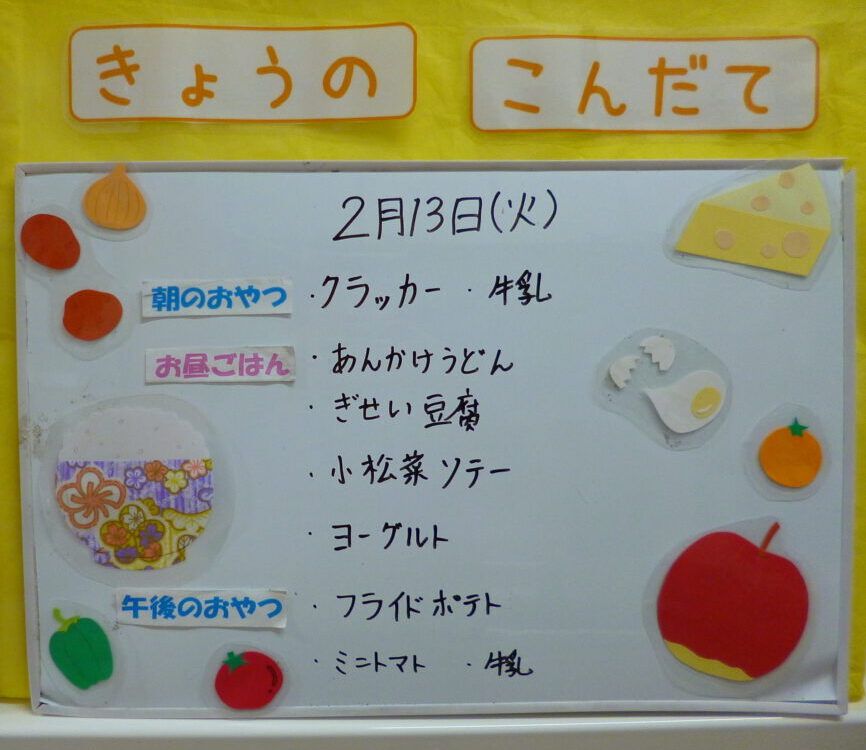 きょうの こんだて
2月13日(火)
朝のおやつ ・クラッカー ・牛乳
お昼ごはん ・あんかけうどん
・ぎせい豆腐
・小松菜ソテー
・ヨーグルト
午後のおやつ ・フライドポテト
・ミニトマト ・牛乳